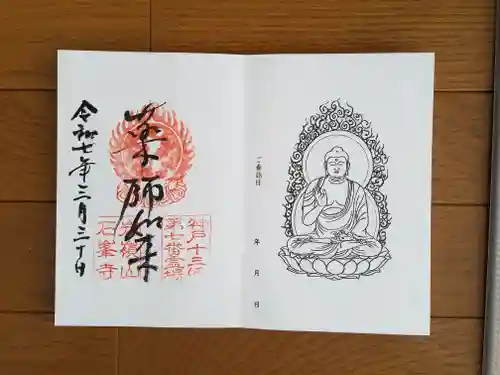 薬師如来
令和七年三月二十日
神戸十三仏
第七番霊場
岩嶺山
石峯寺
ご参詣日
年 月 日